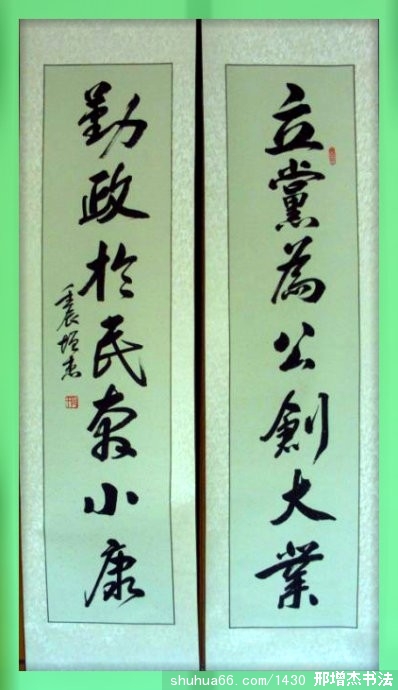 立黨為公創大業
勤政於民奔小康
壬辰增杰
shuhua66.com/1430 邢增杰书法